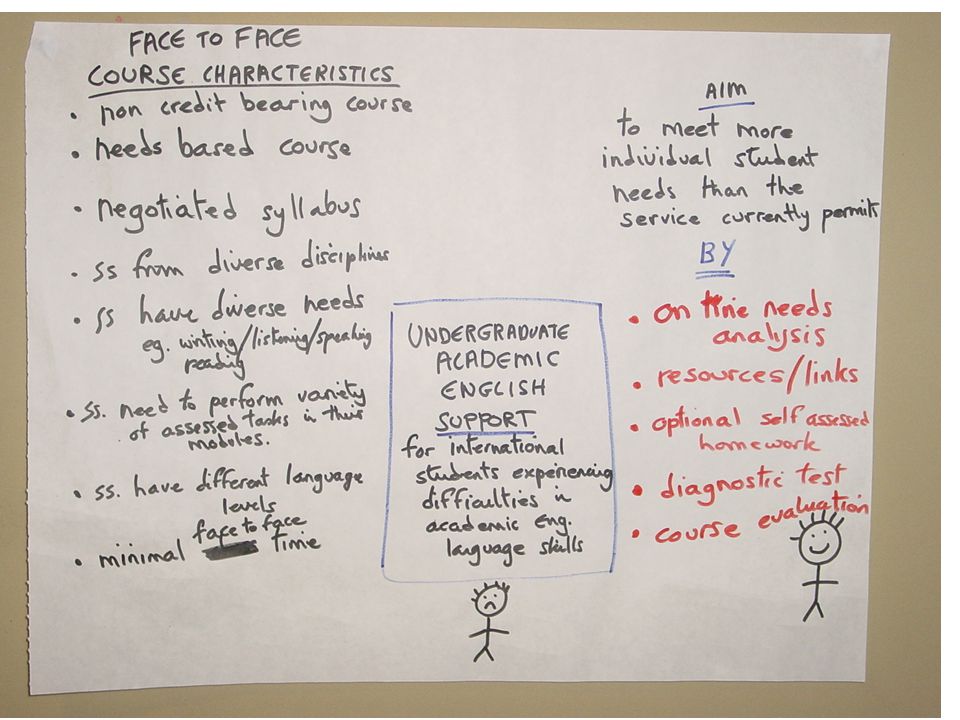 FACE TO FACE
COURSE CHARACTERISTICS
• non credit bearing course
• needs based course
• negotiated syllabus
• ss from diverse disciplines
• ss have diverse needs
eg. writing/listening/speaking
reading
• ss. need to perform variety
of assessed tasks in their
modules.
• ss. have different language
levels
face to face
• minimal time
UNDERGRADUATE
ACADEMIC
ENGLISH
SUPPORT
for international
students experiencing
difficulties in
academic eng.
language skills
AIM
to meet more
individual student
needs than the
service currently permits
BY
• on line needs
analysis
• resources/links
• optional self assessed
homework
• diagnostic test
• course evaluation